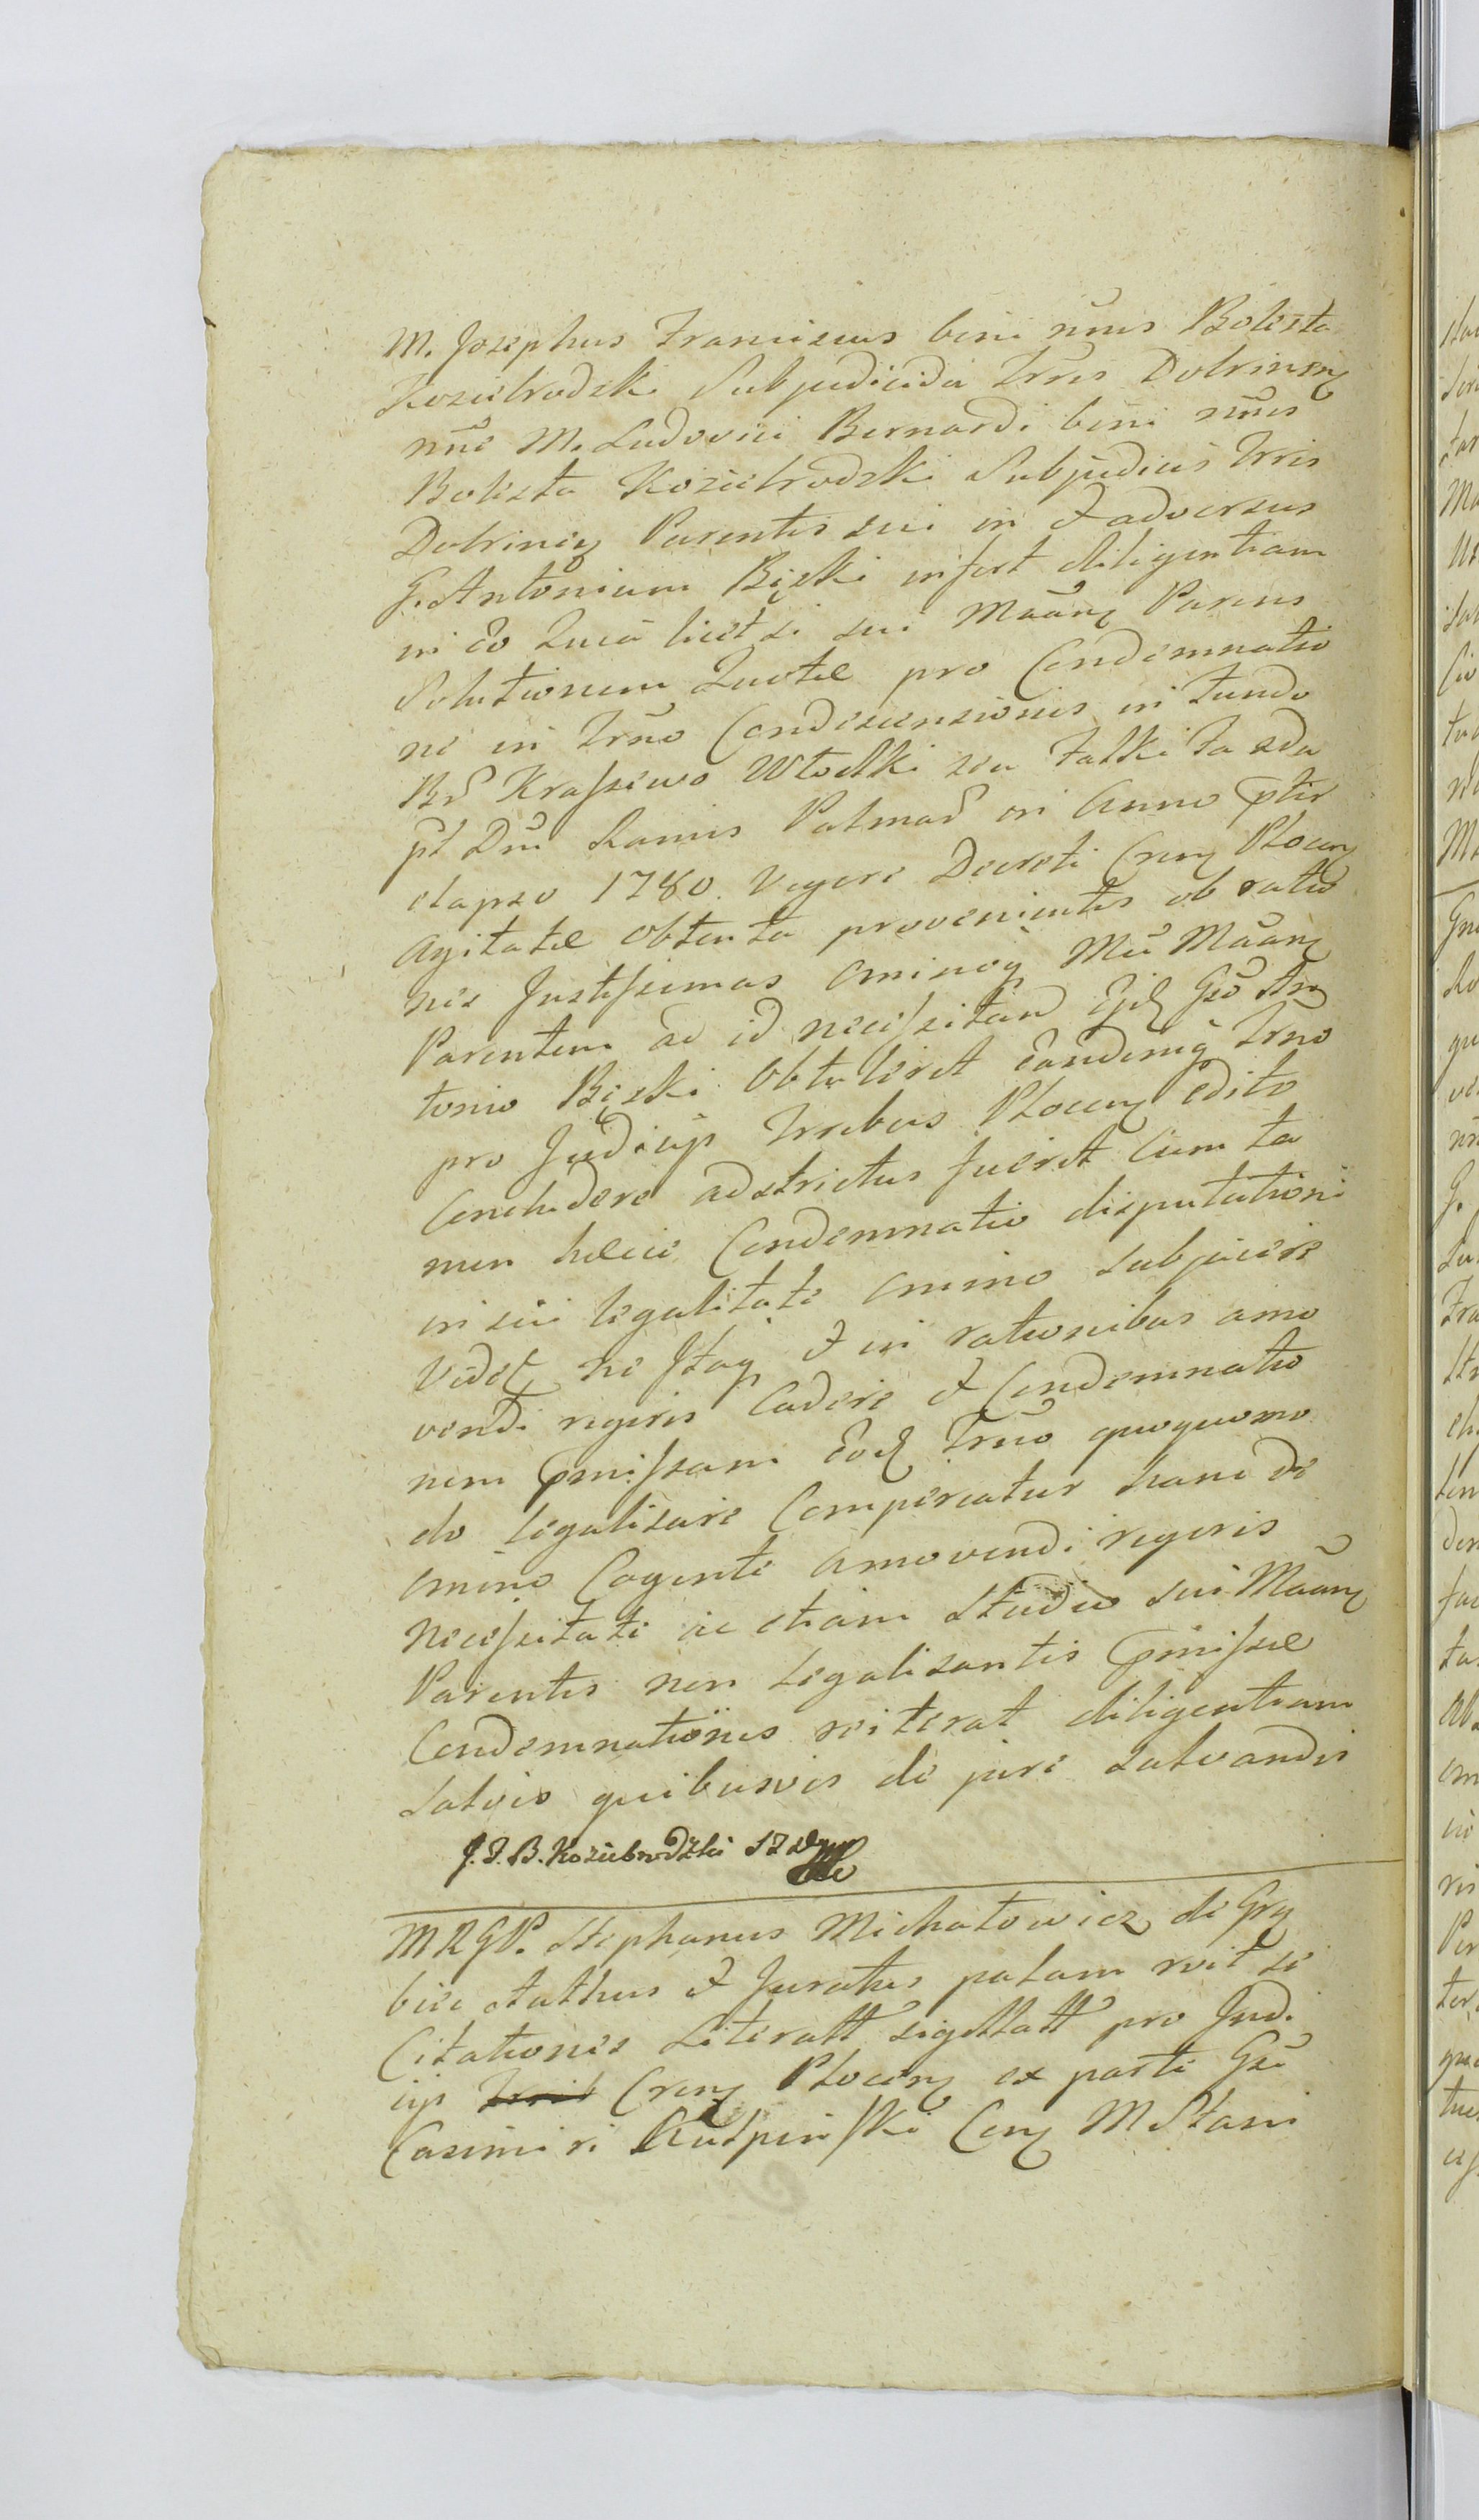 M. Josephus Franciscus bini nnis Bolesta
Koziebrodzki Subjudicida Trris Dobrinens
nne M. Ludovici Bernardi bini nnis
Bolesta Koziebrodzki Subjudicis Trris
Dobrinens Parentis sui in & adversus
G. Antonium Bięski infert diligentiam
in eo Quia licet si sui Maan Parens
Solutionem Quotae pro Condemnatio
ne in Trno Condescensionis in Fundo
Bd Krassewo Wlostki seu Falki Fa 2da
pt Dni Ramis Palmad in Anno ptir
elapso 1780. Vigore Decreti Cren Plocen
agitatae obtenta provenientis ob ratio
nes Justissimas Ominoq Mu Maan
Parentem ad id necessitan Ejd Gso An
tonio Bięski Obtuleret Eandemq Trno
pro Judicijs Trrbus Plocen edito
Concludere adstrictus fueret Cum ta
men haecce Condemnatio disputationi
in sui legalitate omino subjicere
Videt ne Itaq & in rationibus amo
vendi rigoris Cadere & Condemnatio
nem pmissam Eod Trno quoquomo
do legalisare Comperiatur hanc de
omino Cogente amovendi rigoris
Necessitate ac etiam Studio sui Maan
Parentis non Legalisantis pmissae
Condemnationis reiterat diligentiam
Salvis quibusvis de jure Salvandis
J. F. B. Koziebrodzki
MRGP. Stephanus Michałowicz de Gry
bice Stathus & Juratus palam rvit se
Citationes Literatt sigillatt pro Judi
cijs Trrib Cren Plocen ex parte Gsi
Casimiri Rutpinski Con M Stani